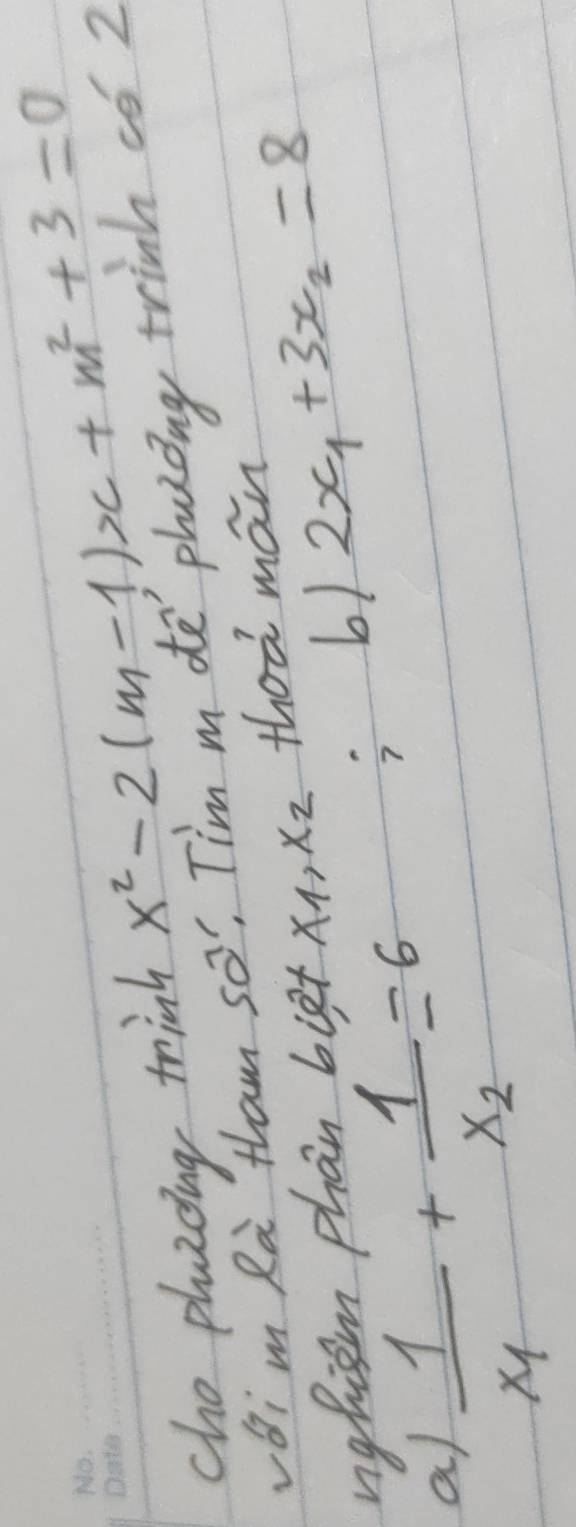 No. ........
Date ....................
Cho phương trình x² - 2(m - 1)x + m² + 3 = 0
với m là tham số. Tìm m để phương trình có 2
nghiệm phân biệt x₁, x₂ thoả mãn
a) 1/x₁ + 1/x₂ = 6 ; b) 2x₁ + 3x₂ = 8